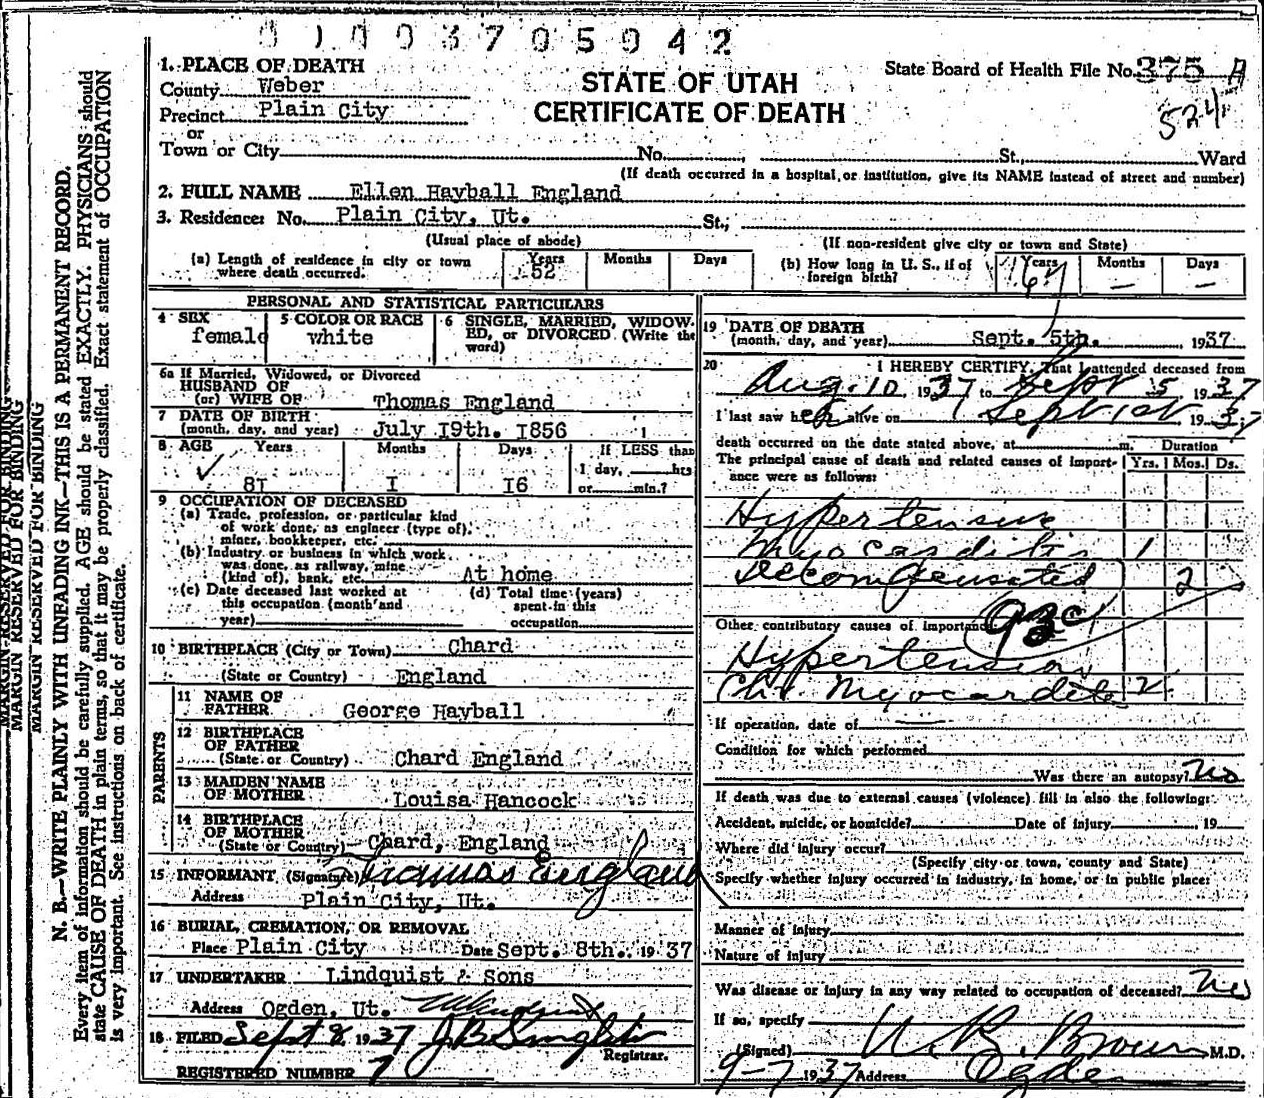 01003705042
1. PLACE OF DEATH
County Weber
Precinct Plain City
or
Town or City No. St., Ward
STATE OF UTAH
CERTIFICATE OF DEATH
State Board of Health File No. 375 A
(If death occurred in a hospital or institution, give its NAME instead of street and number)
2. FULL NAME Ellen Hayball England
3. Residence: No. Plain City, Ut. St.,
(Usual place of abode) (If non-resident give city or town and State)
(a) Length of residence in city or town where death occurred. Years 52 Months Days
(b) How long in U. S., if of foreign birth? Years 67 Months — Days —
PERSONAL AND STATISTICAL PARTICULARS
4 SEX female
5 COLOR OR RACE white
6 SINGLE, MARRIED, WIDOWED, or DIVORCED (Write the word)
6a If Married, Widowed, or Divorced
HUSBAND OF
(or) WIFE OF Thomas England
7 DATE OF BIRTH
(month, day, and year) July I9th. I856
8 AGE Years 8I Months I Days I6
If LESS than
1 day, hrs
or min.?
9 OCCUPATION OF DECEASED
(a) Trade, profession, or particular kind
of work done, as engineer (type of),
miner, bookkeeper, etc.
(b) Industry or business in which work
was done, as railway, mine
(kind of), bank, etc. At home
(c) Date deceased last worked at
this occupation (month and
year)
(d) Total time (years)
spent in this
occupation
10 BIRTHPLACE (City or Town) Chard
(State or Country) England
PARENTS
11 NAME OF
FATHER George Hayball
12 BIRTHPLACE
OF FATHER
(State or Country) Chard England
13 MAIDEN NAME
OF MOTHER Louisa Hancock
14 BIRTHPLACE
OF MOTHER
(State or Country) Chard, England
15 INFORMANT (Signature) Thomas England
Address Plain City, Ut.
16 BURIAL, CREMATION, OR REMOVAL
Place Plain City Date Sept. 8th., 1937
17 UNDERTAKER Lindquist & Sons
Address Ogden, Ut.
18 FILED Sept 8, 1937
Registrar.
REGISTERED NUMBER 7
19 DATE OF DEATH
(month, day, and year) Sept. 5th. 1937
20 I HEREBY CERTIFY, That I attended deceased from
Aug. 10 1937 to Sept 5, 1937
I last saw her alive on Sept 1st, 1937
death occurred on the date stated above, at m. Duration
The principal cause of death and related causes of importance were as follows: Yrs. Mos. Ds.
Hypertensive
Myocarditis 1
Decompensated 2
Other contributory causes of importance
Hypertension
Chr. Myocarditis 2
If operation, date of
Condition for which performed
Was there an autopsy? No
If death was due to external causes (violence) fill in also the following:
Accident, suicide, or homicide? Date of injury , 19
Where did injury occur?
(Specify city or town, county and State)
Specify whether injury occurred in industry, in home, or in public place:
Manner of injury
Nature of injury
Was disease or injury in any way related to occupation of deceased?
If so, specify
(Signed) Brown M.D.
9-7 1937 Address Ogden
N. B.—WRITE PLAINLY WITH UNFADING INK—THIS IS A PERMANENT RECORD.
Every item of information should be carefully supplied. AGE should be stated EXACTLY. PHYSICIANS should
state CAUSE OF DEATH in plain terms, so that it may be properly classified. Exact statement of OCCUPATION
is very important. See instructions on back of certificate.
MARGIN RESERVED FOR BINDING
MARGIN RESERVED FOR BINDING
MARGIN RESERVED FOR BINDING